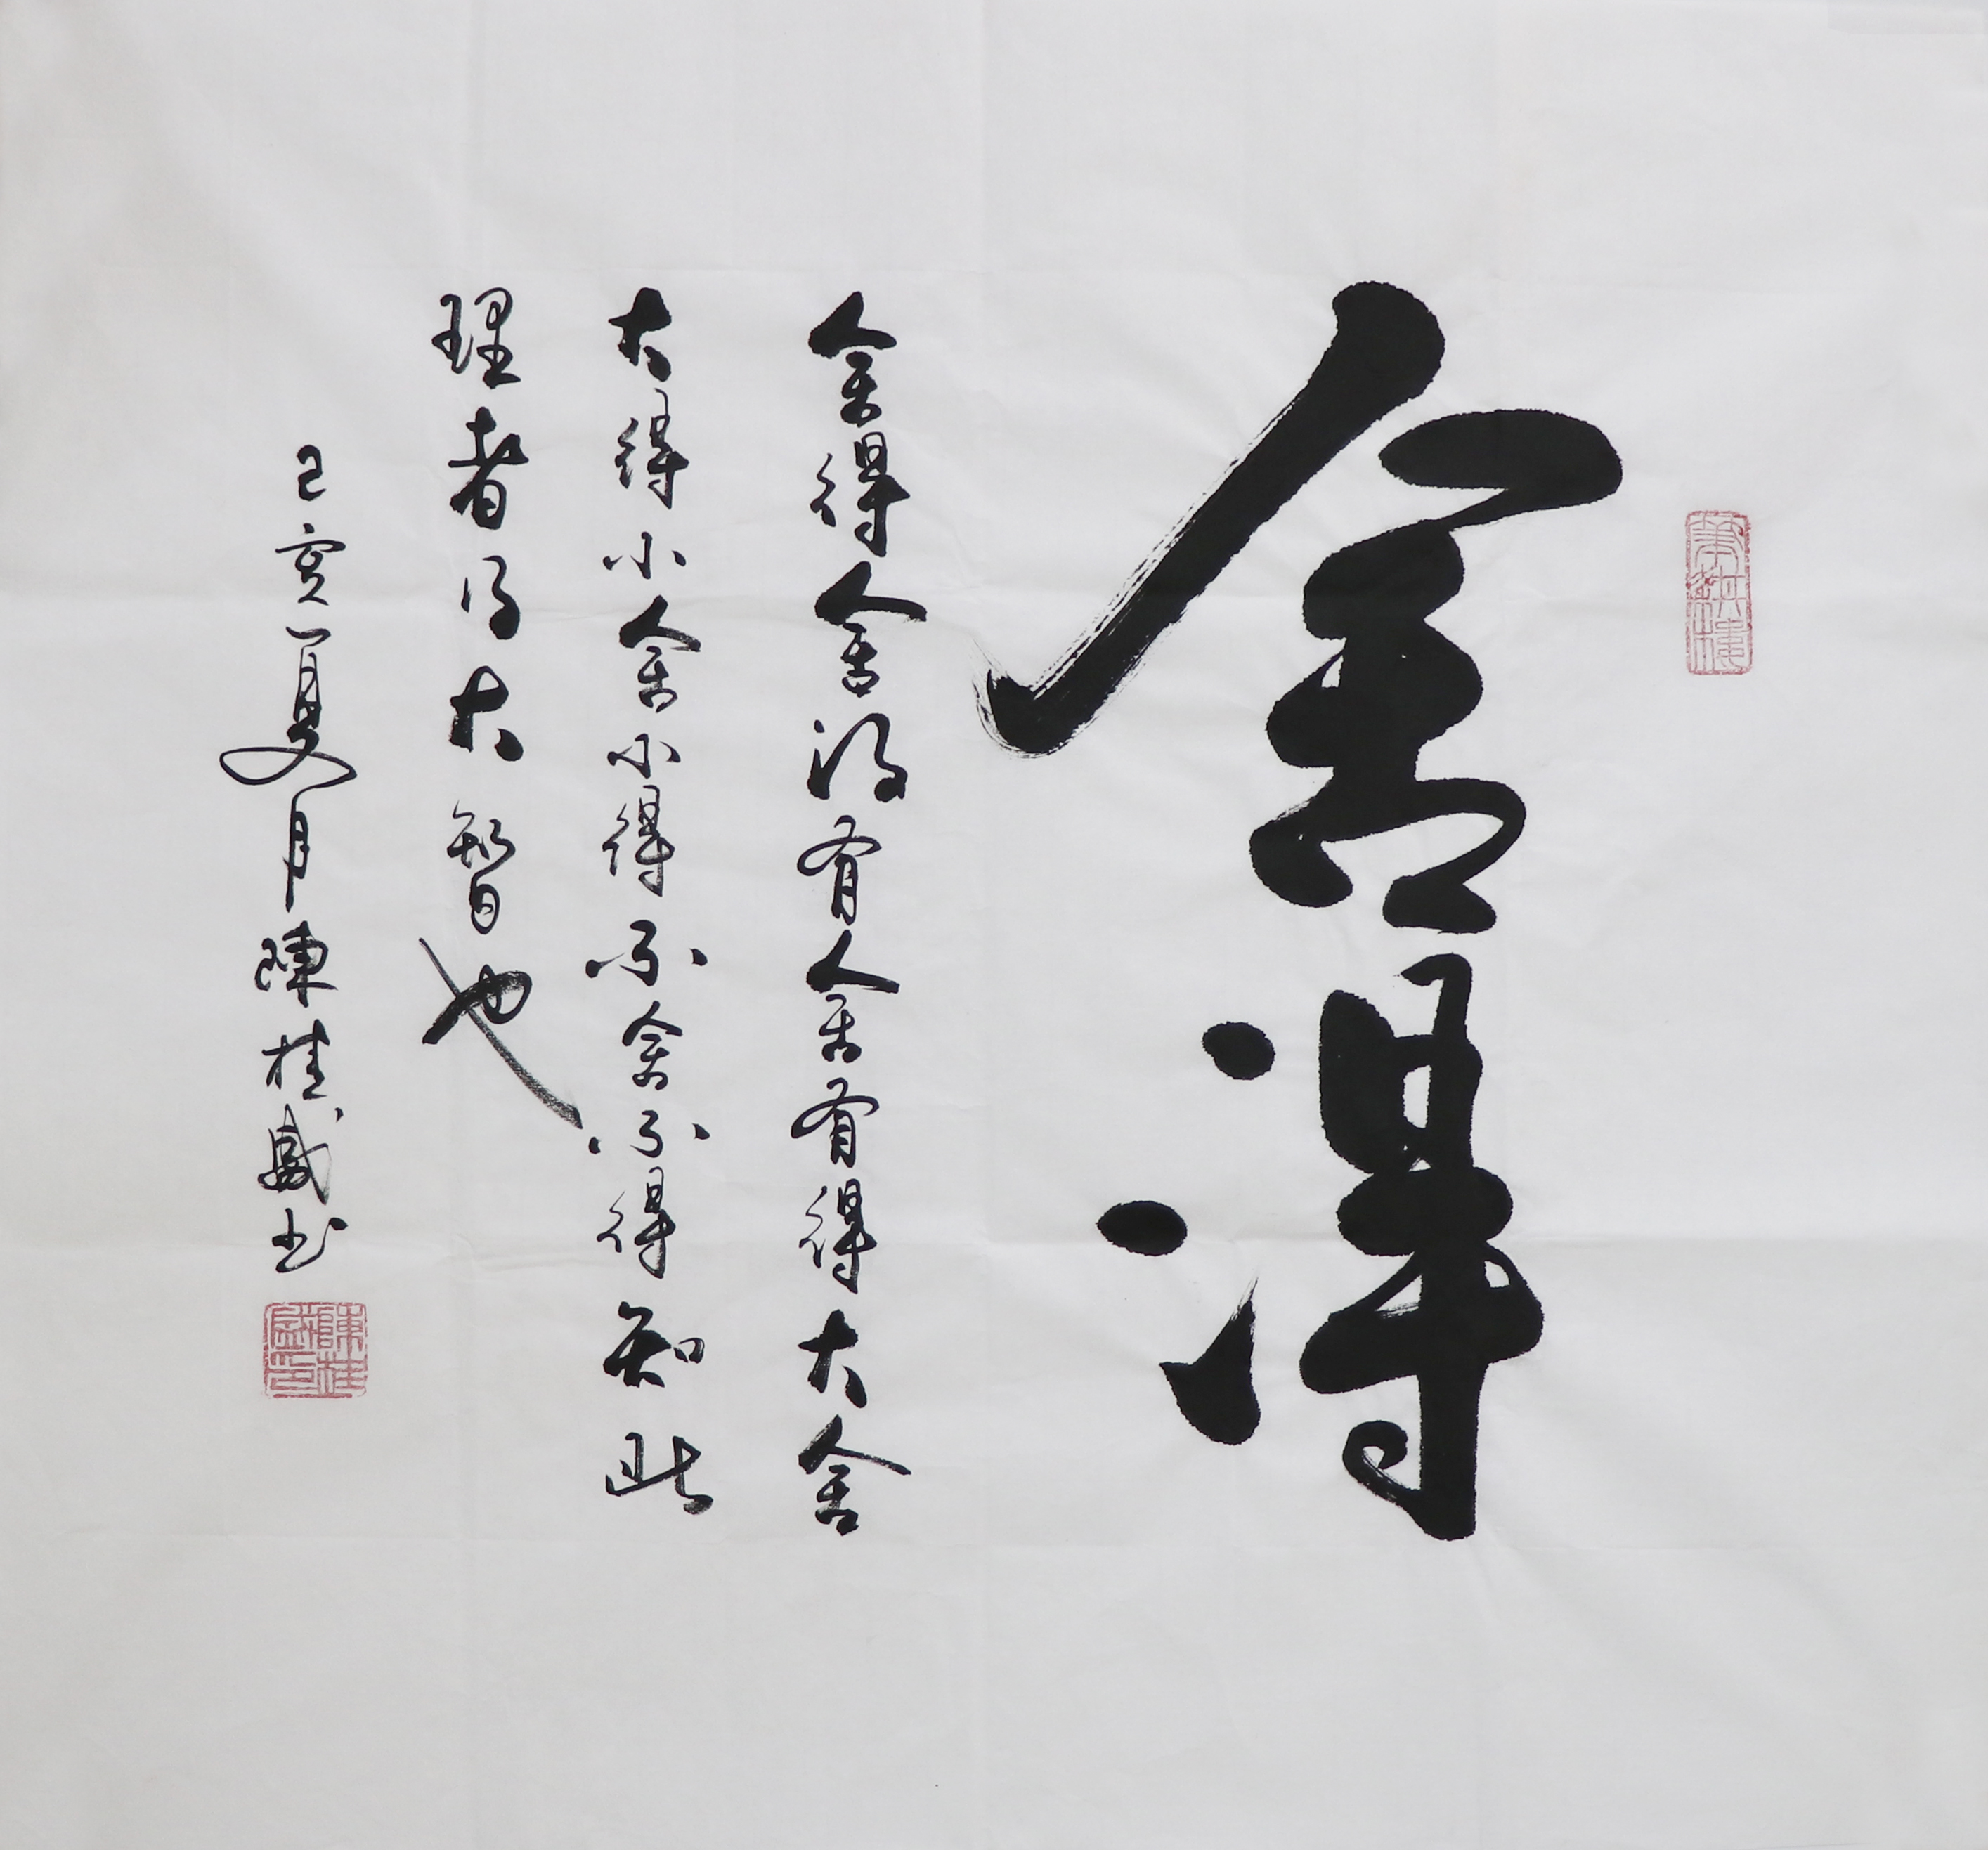 舍得
舍得舍得有舍有得大舍
大得小舍小得不舍不得知此
理者得大智也
己亥夏月陳桂盛书
陳桂盛印